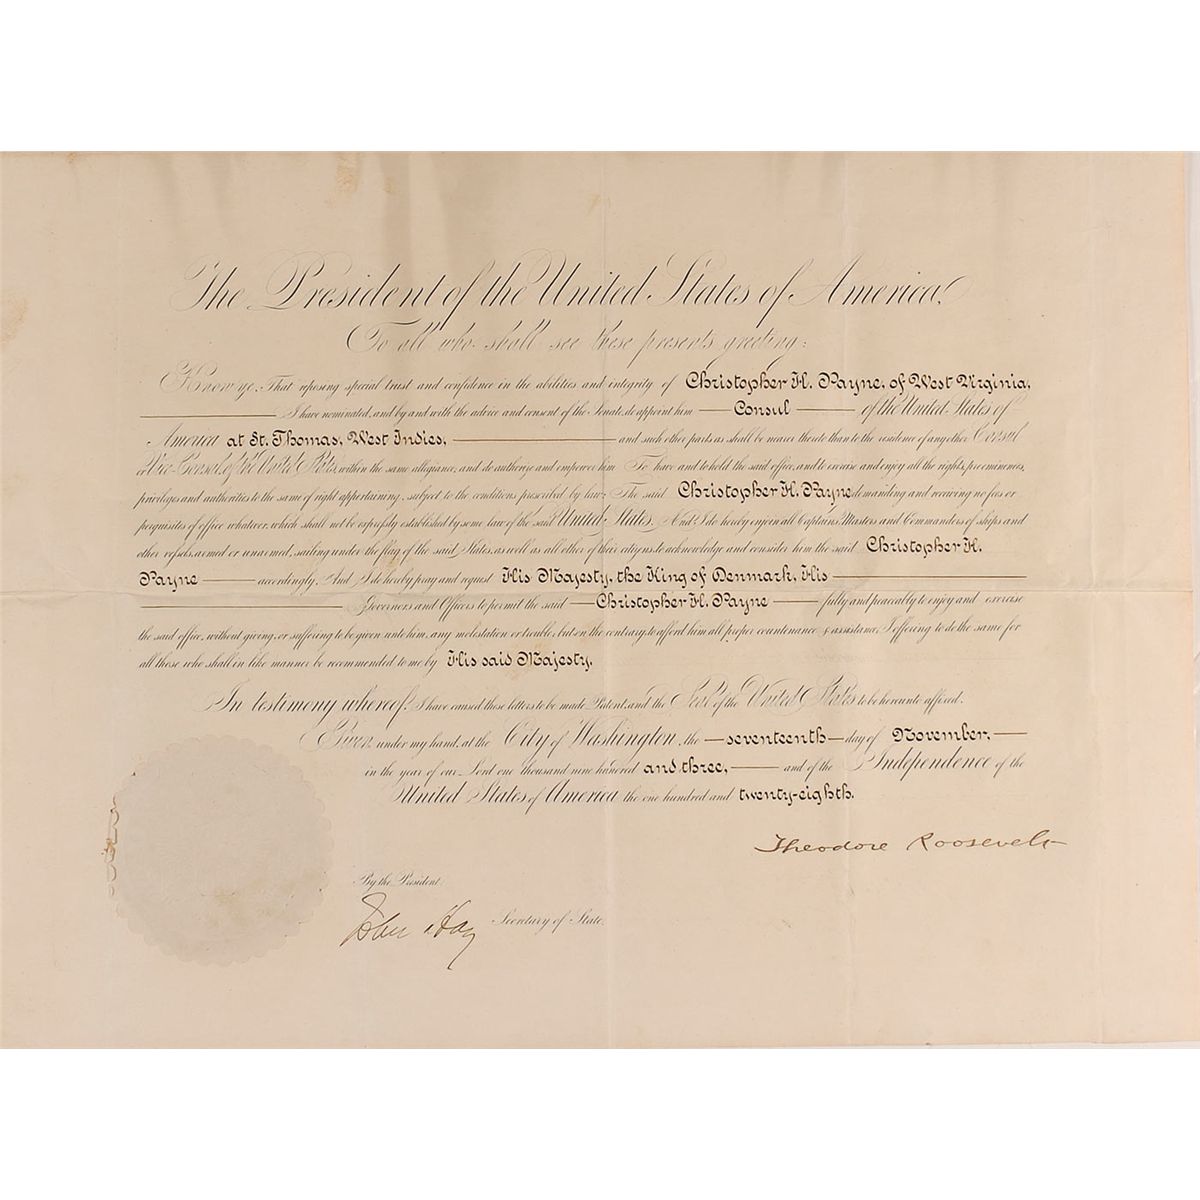 The President of the United States of America,
To all who shall see these presents greeting:
Know ye, That reposing special trust and confidence in the abilities and integrity of Christopher H. Payne, of West Virginia,
I have nominated, and by and with the advice and consent of the Senate, do appoint him Consul of the United States of
America at St. Thomas, West Indies, and such other parts as shall be nearer thereto than to the residence of any other Consul
or Vice-Consul of the United States, within the same allegiance; and do authorize and empower him To have and to hold the said office, and to exercise and enjoy all the rights, preeminences,
privileges and authorities to the same of right appertaining, subject to the conditions prescribed by law; The said Christopher H. Payne demanding and receiving no fees or
perquisites of office whatever, which shall not be expressly established by some law of the said United States. And I do hereby enjoin all Captains, Masters and Commanders of ships and
other vessels, armed or unarmed, sailing under the flag of the said States, as well as all other of their citizens, to acknowledge and consider him the said Christopher H.
Payne accordingly. And I do hereby pray and request His Majesty, the King of Denmark, His
Governors and Officers to permit the said Christopher H. Payne fully and peaceably to enjoy and exercise
the said office, without giving, or suffering to be given unto him, any molestation or trouble, but on the contrary, to afford him all proper countenance & assistance; I offering to do the same for
all those who shall in like manner be recommended to me by His said Majesty.
In testimony whereof, I have caused these letters to be made Patent, and the Seal of the United States to be hereunto affixed.
Given under my hand, at the City of Washington, the seventeenth day of November,
in the year of our Lord one thousand nine hundred and three, and of the Independence of the
United States of America the one hundred and twenty-eighth.
Theodore Roosevelt
By the President:
John Hay Secretary of State.